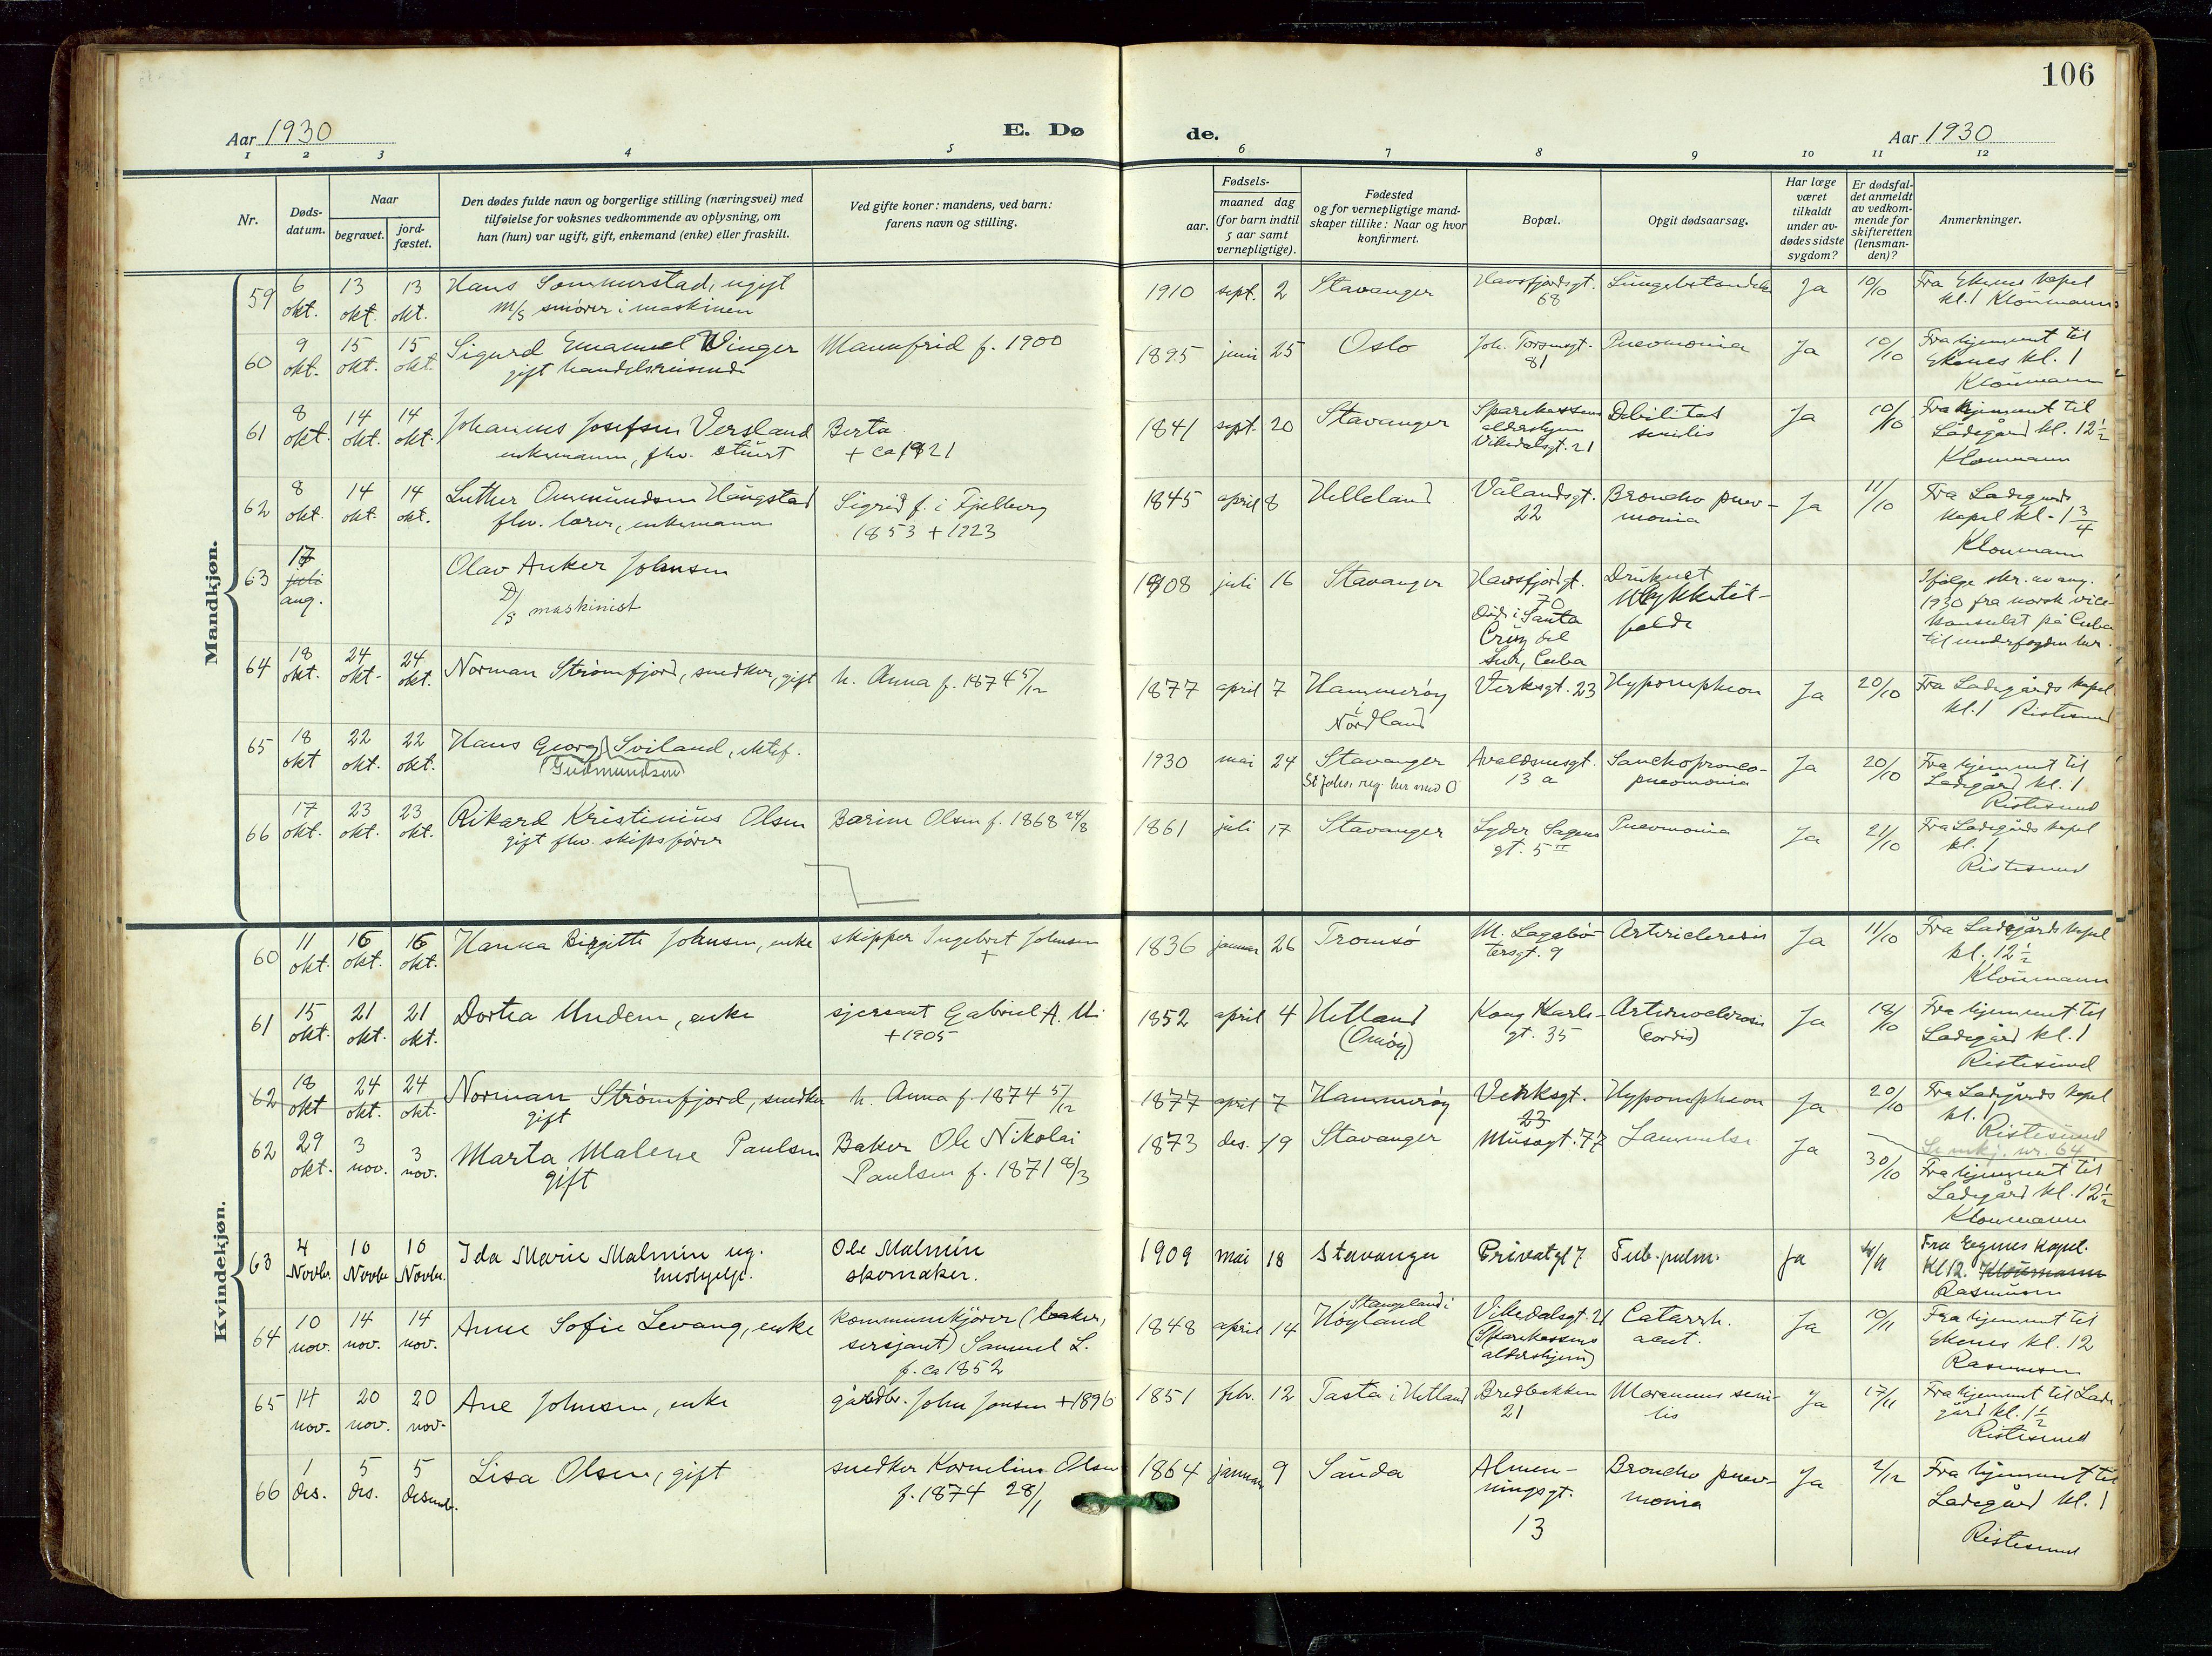 106
Aar 1930
E. Dø
de.
Aar 1930
1 2 3 4 5 6 7 8 9 10 11 12
Nr.
Døds-
datum.
Naar
begravet.
jord-
fæstet.
Den dødes fulde navn og borgerlige stilling (næringsvei) med
tilføielse for voksnes vedkommende av oplysning, om
han (hun) var ugift, gift, enkemand (enke) eller fraskilt.
Ved gifte koner: mandens, ved barn:
farens navn og stilling.
Fødsels-
aar.
maaned dag
(for barn indtil
5 aar samt
vernepligtige).
Fødested
og for vernepligtige mand-
skaper tillike: Naar og hvor
konfirmert.
Bopæl.
Opgit dødsaarsag.
Har læge
været
tilkaldt
under av-
dødes sidste
sygdom?
Er dødsfal-
det anmeldt
av vedkom-
mende for
skifteretten
(lensman-
den)?
Anmerkninger.
Mandkjøn.
59 6 okt. 13 okt. 13 okt. Hans Sommerstad, ugift
M/S smører i maskinen
1910 sept. 2 Stavanger Havsfjordsgt. 68 Ja 10/10 Fra Ekenes kapel
kl. 1 Kloumann
60 9 okt. 15 okt. 15 okt. Sigurd Emanuel Winger
gift handelsreisende
Mannfrid f. 1900
1895 juni 25 Oslo Joh. Torsonsgt. 81 Pneomonia Ja 10/10 Fra hjemmet til
Ekenes kl. 1
Kloumann
61 8 okt. 14 okt. 14 okt. Johannes Josefsen Versland
enkemann, fhv. stuert
Berta
+ ca 1921
1841 sept. 20 Stavanger Sparekassens
aldershjem
Vikedalsgt. 21
Debilitas
senilis
Ja 10/10 Fra hjemmet til
Ladegård kl. 12½
Kloumann
62 8 okt. 14 okt. 14 okt. Luther Ommundsen Haugstad
fhv. lærer, enkemann
Sigrid f. i Fjelberg
1853 + 1923
1845 april 8 Helleland Vålandsgt. 22 Broncho pnev-
monia
Ja 11/10 Fra Ladegårds
kapel kl. 1 3/4
Kloumann
63 17 juli aug.
Olav Anker Johnsen
D/S maskinist
1908 juli 16 Stavanger Havsfjordgt. 70
Død i Santa
Cruz del
Sur, Cuba
Druknet
Ulykkestil-
felde
Ifølge skr. av aug.
1930 fra norsk vice-
konsulat på Cuba
til underfogden her.
64 18 okt. 24 okt. 24 okt. Norman Strömfjord, snedker, gift
h. Anna f. 1874 5/12
1877 april 7 Hammerøy
i Nordland
Verksgt. 23 Ja 20/10 Fra Ladegårds kapel
kl. 1 Ristesund
65 18 okt 22 okt. 22 okt. Hans Georg Sviland, ektef.
(Gudmundsen)
1930 mai 24 Stavanger
St Johs. reg. her med O
Avaldsnesgt.
13 a
pneomonia
Ja 20/10 Fra hjemmet til
Ladegård kl. 1
Ristesund
66 17 okt. 23 okt. 23 okt. Rikard Kristinius Olsen
gift fhv. skipsfører
Barine Olsen f. 1868 24/8
1861 juli 17 Stavanger Lyder Sagens
gt. 5 II
Pneomonia Ja 21/10 Fra Ladegårds kapel
kl. 1
Ristesund
Kvindekjøn.
60 11 okt. 16 okt. 16 okt. Hanna Birgitte Johnsen, enke
skipper Ingebret Johnsen
+
1836 januar 26 Tromsö M. Lagabö-
tersgt. 9
Ja 11/10 Fra Ladegårds kapel
kl. 12½
Kloumann
61 15 okt. 21 okt. 21 okt. Dortea Undem, enke
sjersant Gabriel A. U.
+ 1905
1852 april 4 Hetland
(Omöy)
Kong Karls-
gt. 35
Arteriosclerosis
(cordis)
Ja 18/10 Fra hjemmet til
Ladegård kl. 1
Ristesund
62 18 okt 24 okt. 24 okt. Norman Strömfjord, snedker
gift
h. Anna f. 1874 5/12
1877 april 7 Hammerøy Verksgt.
23
Ja 20/10 Fra Ladegårds kapel
kl. 1
Ristesund
Se mkj. nr. 64
62 29 okt. 3 nov. 3 nov. Marta Malene Paulsen
gift
Baker Ole Nikolai
Paulsen f. 1871 8/3
1873 des. 19 Stavanger Musegt. 77 Lammelse Ja 30/10 Fra hjemmet til
Ladegård kl. 12½
Kloumann
63 4 Novbr. 10 Novbr. 10 Novbr. Ida Marie Malmin ug.
hushjelp.
Ole Malmin
skomaker.
1909 mai 18 Stavanger Privatgt 7 Tub. pulm. Ja 4/11 Fra Egenes Kapel.
Kl 12. Kloumann
Rasmussen
64 10 nov. 14 nov. 14 nov. Anne Sofie Levang, enke
kommunekjörer (baker,
sersjant) Samuel L.
f. ca 1852
1848 april 14 Stangeland i
Höyland
Vikedalsgt. 21
(Sparekassens
aldershjem)
Catarrh.
acut.
Ja 10/11 Fra hjemmet til
Ekenes kl. 12
Rasmussen
65 14 nov. 20 nov. 20 nov. Ane Johnsen, enke
gårdbr. John Jonsen + 1896
1851 febr. 12 Tasta i Hetland Bredbakken
21
Marasmus seni-
lis
Ja 17/11 Fra hjemmet til Lade-
gård kl. 1½
Ristesund
66 1 des. 5 des. 5 desemb. Lisa Olsen, gift
snedker Kornelius Olsen
f. 1874 28/1
1864 januar 9 Sauda Almen-
ningsgt.
13
Broncho pnev-
monia
Ja 2/12 Fra hjemmet til
Ladegård kl. 1
Ristesund